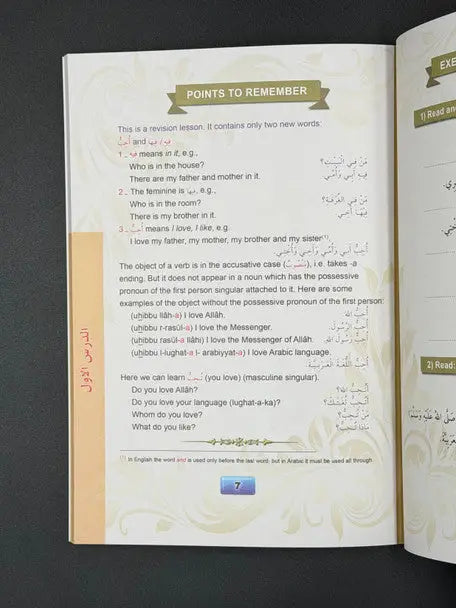 POINTS TO REMEMBER
This is a revision lesson. It contains only two new words:
فِيهِ / فِيهَا and أُحِبُّ
1 ـ فِيهِ means in it, e.g.,
Who is in the house? مَنْ فِي الْبَيْتِ؟
There are my father and mother in it. فِيهِ أَبِي وَأُمِّي.
2 ـ The feminine is فِيهَا, e.g.,
Who is in the room? مَنْ فِي الْغُرْفَةِ؟
There is my brother in it. فِيهَا أَخِي
3 ـ أُحِبُّ means I love, I like, e.g.
I love my father, my mother, my brother and my sister(1).
أُحِبُّ أَبِي وَأُمِّي وَأَخِي وَأُخْتِي.
The object of a verb is in the accusative case (مَنْصُوبٌ), i.e. takes -a
ending. But it does not appear in a noun which has the possessive
pronoun of the first person singular attached to it. Here are some
examples of the object without the possessive pronoun of the first person:
(uḥibbu llāh-a) I love Allâh. أُحِبُّ اللهَ.
(uḥibbu r-rasûl-a) I love the Messenger. أُحِبُّ الرَّسُولَ.
(uḥibbu rasûl-a llâhi) I love the Messenger of Allâh. أُحِبُّ رَسُولَ اللهِ.
(uḥibbu l-lughat-a l- arabiyyat-a) I love Arabic language.
أُحِبُّ اللُّغَةَ الْعَرَبِيَّةَ.
Here we can learn تُحِبُّ (you love) (masculine singular).
Do you love Allâh? أَتُحِبُّ اللهَ؟
Do you love your language (lughat-a-ka)? أَتُحِبُّ لُغَتَكَ؟
Whom do you love? مَنْ تُحِبُّ؟
What do you like? مَاذَا تُحِبُّ؟
(1) In English the word and is used only before the last word, but in Arabic it must be used all through
7
الدرس الأول
EXE
1) Read an
2) Read:
صَلَّى اللهُ عَلَيْهِ وَسَلَّمَ